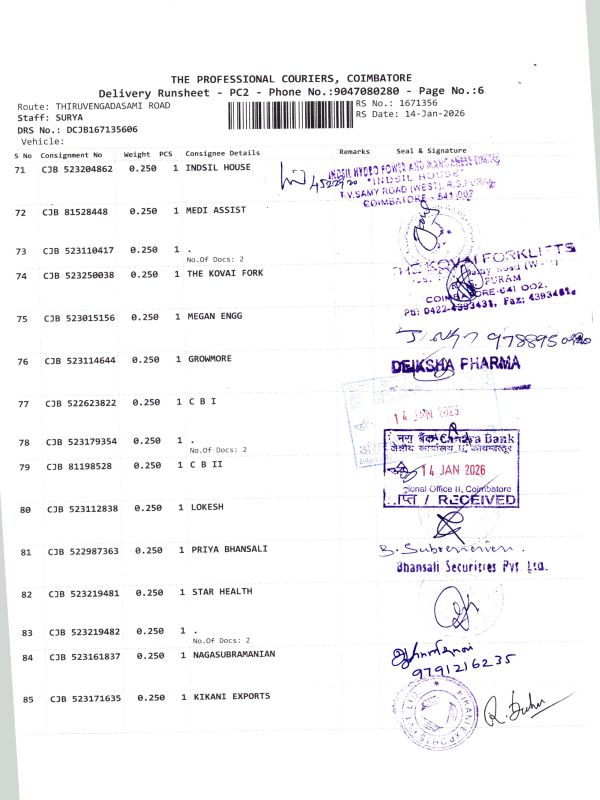 THE PROFESSIONAL COURIERS, COIMBATORE
Delivery Runsheet - PC2 - Phone No.:9047080280 - Page No.:6
Route: THIRUVENGADASAMI ROAD RS No.: 1671356
Staff: SURYA RS Date: 14-Jan-2026
DRS No.: DCJB167135606
Vehicle:
S No Consignment No Weight PCS Consignee Details Remarks Seal & Signature
71 CJB 523204862 0.250 1 INDSIL HOUSE
INDSIL HYDRO POWER AND MANGANESE LIMITED
"INDSIL HOUSE"
T.V.SAMY ROAD (WEST), R.S.PURAM
COIMBATORE - 641 002
72 CJB 81528448 0.250 1 MEDI ASSIST
73 CJB 523110417 0.250 1 .
No.Of Docs: 2
74 CJB 523250038 0.250 1 THE KOVAI FORK
THE KOVAI FORKLIFTS
PURAM
COIMBATORE-641 002.
Ph: 0422-4393431, Fax: 4393461
75 CJB 523015156 0.250 1 MEGAN ENGG
76 CJB 523114644 0.250 1 GROWMORE
DEIKSHA PHARMA
77 CJB 522623822 0.250 1 C B I
14 JAN 2026
78 CJB 523179354 0.250 1 .
No.Of Docs: 2
केनरा बैंक Canara Bank
क्षेत्रीय कार्यालय II, कोयम्बत्तूर
79 CJB 81198528 1 C B II 0.250
14 JAN 2026
Regional Office II, Coimbatore
प्राप्ति / RECEIVED
80 CJB 523112838 0.250 1 LOKESH
81 CJB 522987363 0.250 1 PRIYA BHANSALI
B. Subramanian.
Bhansali Securities Pvt. Ltd.
82 CJB 523219481 0.250 1 STAR HEALTH
83 CJB 523219482 0.250 1 .
No.Of Docs: 2
84 CJB 523161837 0.250 1 NAGASUBRAMANIAN
9791216235
85 CJB 523171635 0.250 1 KIKANI EXPORTS
KIKANI EXPORTS PVT LTD